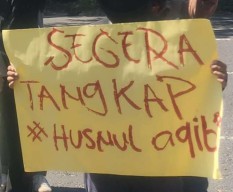 SEGERA
TANGKAP
# HUSNUL aqib